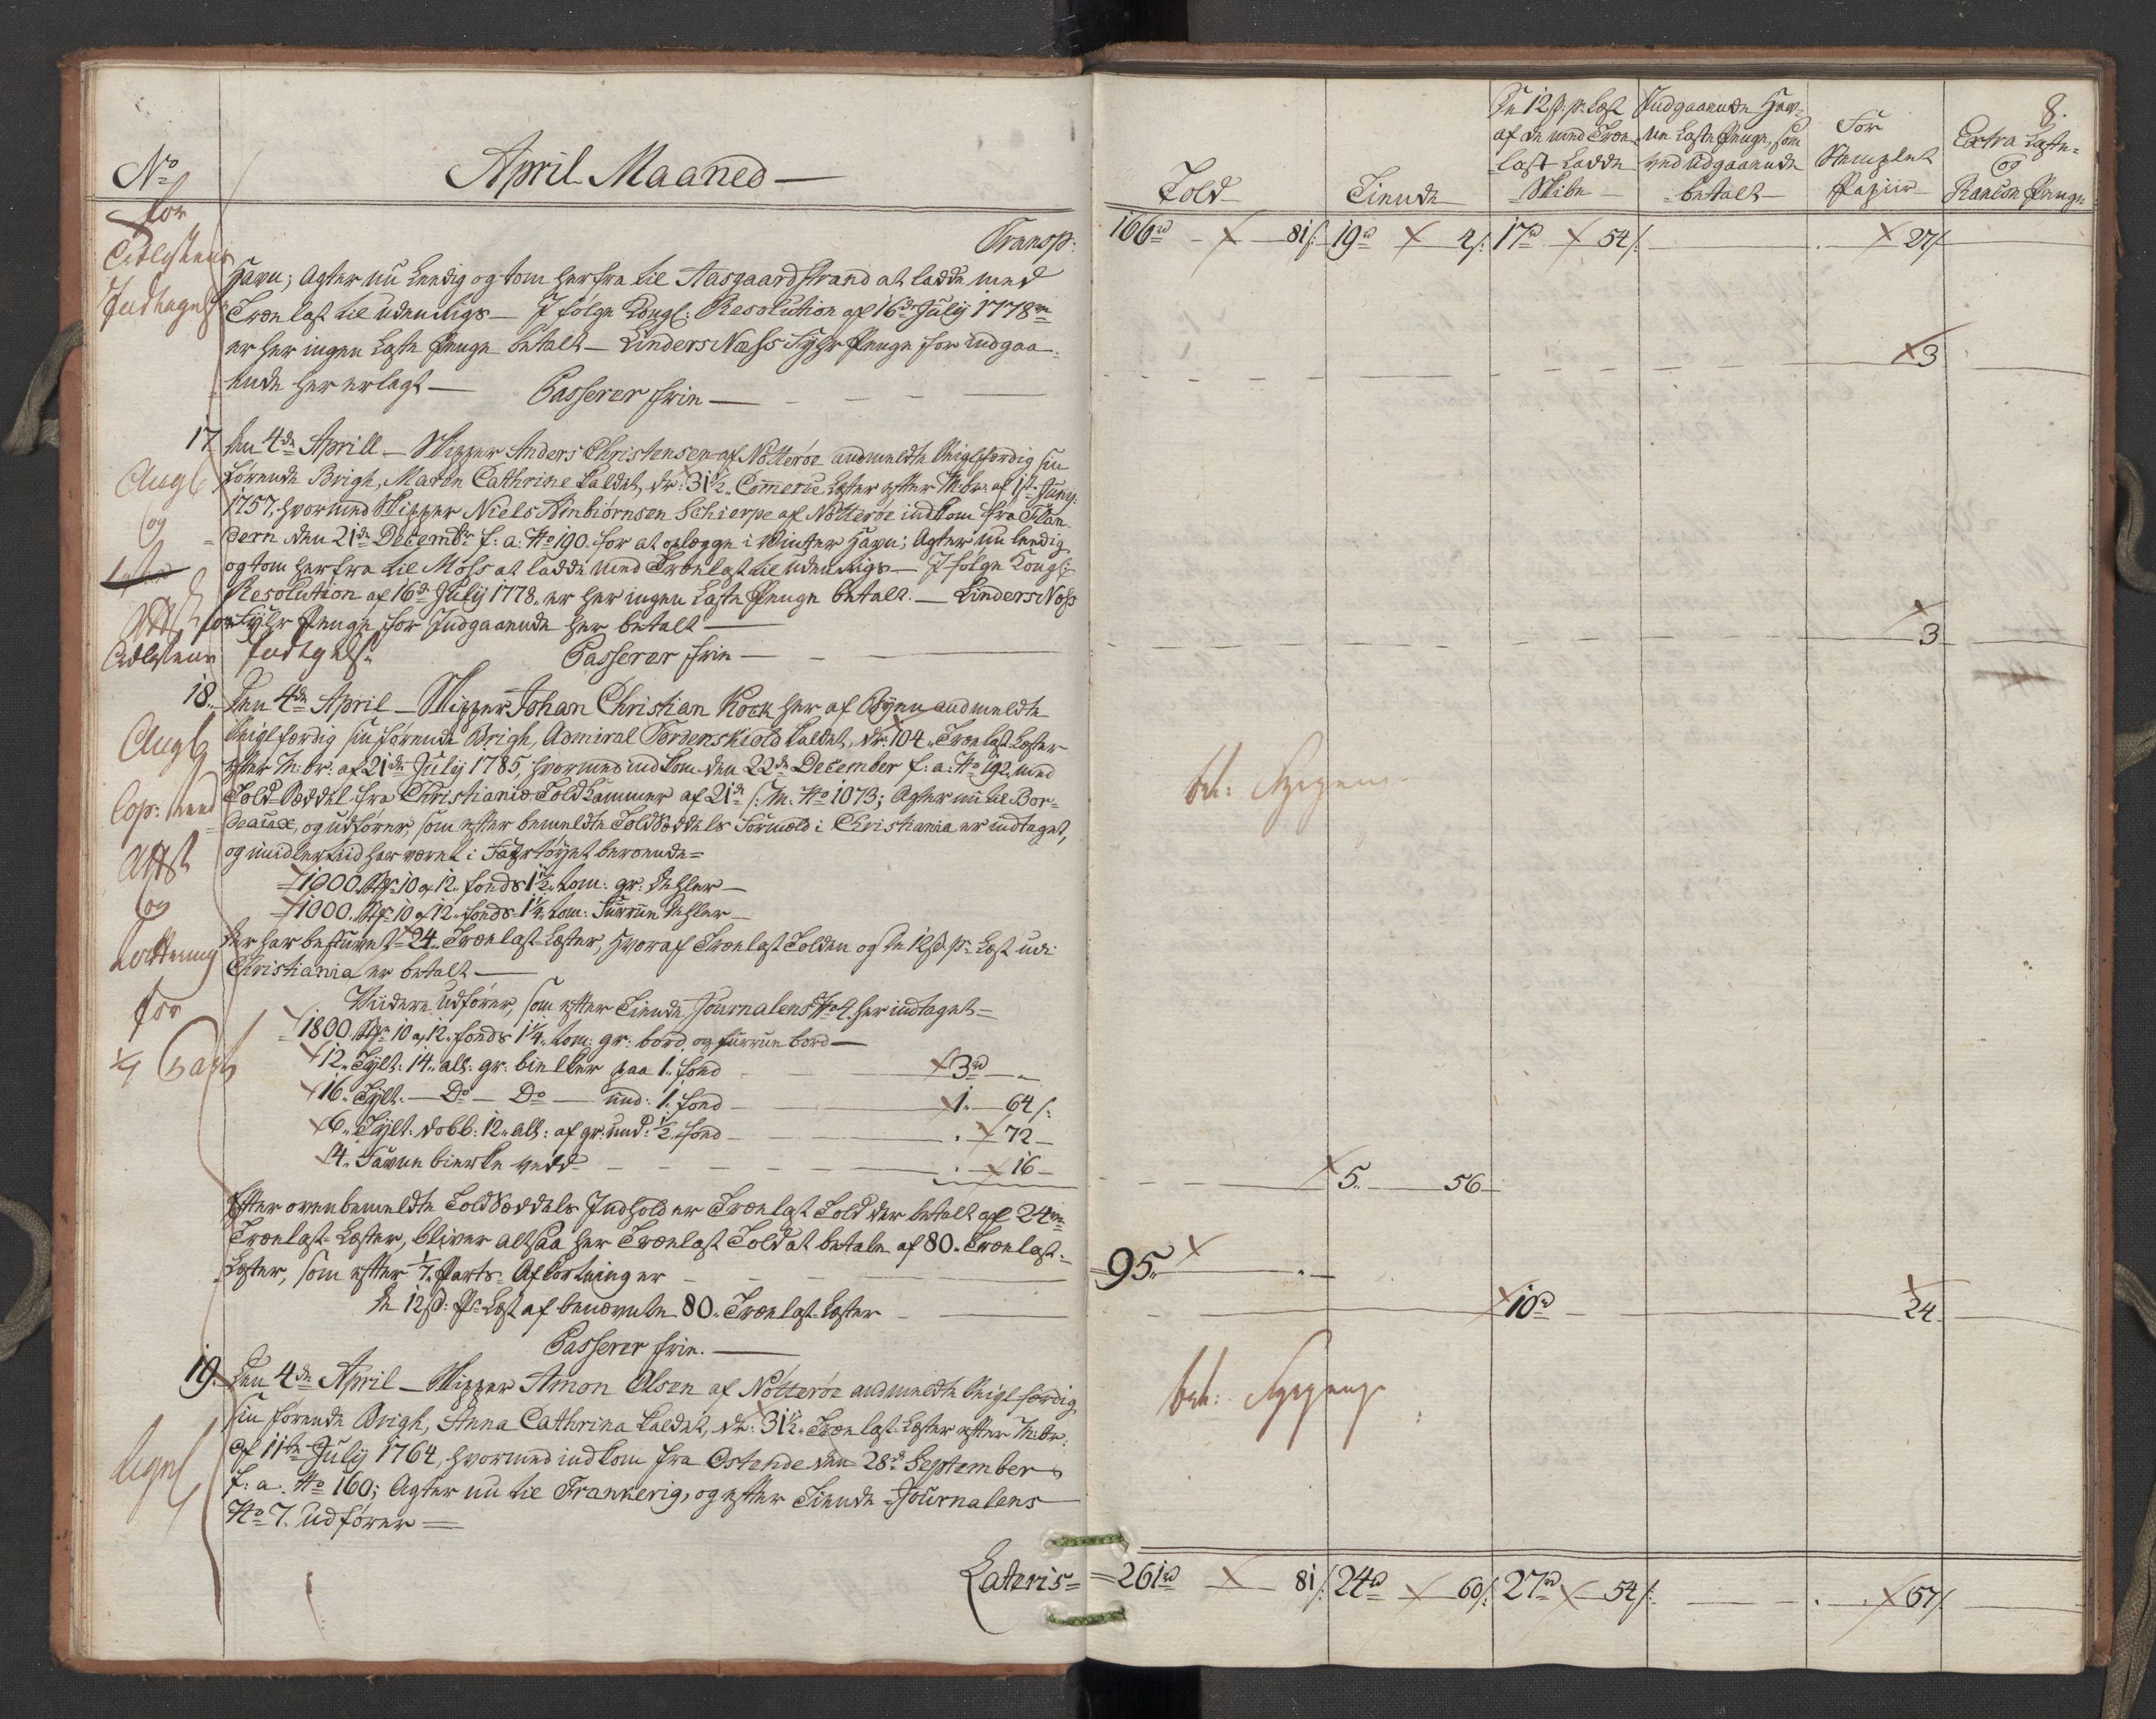 No
April Maaned
for
Transp:
Havn; Agter nu Leedig og tom herfra til Aasgaardstrand at ladde med
Trælast til udenrigs — I følge Kongl: Resolution af 16de Julij 1778
er her ingen Læste Penge betalt — Linders Næss Fyhr Penge for indgaa-
ende her erlagt —
Passerer frie —
17. Den 4de Aprill — Skipper Anders Christensen af Nøtterøe andmeldte Seiglfærdig sin
førende Brigh, Maren Cathrine kaldet, dr: 31½ Commerce Læster efter M:br: af 1ste Junij
1757, hvormed Skipper Niels Arnbiørnsen Schierpe af Nøtterøe indkom fra Flan-
dern den 21de Decembr f: a: No 190. for at oplægge i Winter Havn; Agter nu leedig
og tom herfra til Moss at ladde med Trælast til udenrigs — I følge Kongl:
Resolution af 16de Julij 1778 er her ingen Læste Penge betalt. — Linders Næss
Fyhr Penge for Indgaaende her betalt —
Passerer frie —
18. Den 4de April — Skipper Johan Christian Kock her af Byen andmeldte
Seiglfærdig sin førende Brigh, Admiral Tordenskiold kaldet, dr: 104 Trælast Læster
efter M:br: af 21de Julij 1785, hvormed indkom den 22de December f: a: No 192, med
Told-Sæddel fra Christiania Toldkammer af 21de s: M: No 1073; Agter nu til Bor-
deaux, og udfører som efter bemeldte Toldsæddels Formæld i Christiania er indtaget,
og imidlertiid har været i Fartøyet beroende=
1000 10 a 12 fods 1½ tom: gr: dehler —
1000. 10 a 12 fods 1¼ tom: Furrue dehler —
der har bestuvet 24 Trælast-Læster, hvoraf Trælast Tolden og de 12 s. pr Læst udi
Christiania er betalt —
Viidere udfører, som efter Tiende Journalens No 4. her indtaget=
1800 10 a 12 fods 1¼ tom: gr: bord og furrue bord —
12 Tylt: 14 all: gr: bielker paa 1 fod — 3 rd —
16 Tylt: — Do — Do — und: 1 fod — 1 — 64 s:
6 Tylt: dobb: 12 all: af gr: und: ½ fod — 72 —
4 Favne bierke vedd — 16 —
Efter ovenbemeldte Toldsæddels Indhold er Trælast Told der betalt af 24
Trælast-Læster, bliver altsaa her Trælast Told at betale af 80 Trælast-
Læster, som efter 1/7 Parts Afkortning er —
de 12 s: Pr Læst af benævnte 80 Trælast-Læster —
Passerer frie. —
19. Den 4de April — Skipper Amon Olsen af Nøtterøe andmeldte Seiglfærdig
sin førende Brigh, Anna Cathrina kaldet, dr: 31½ Trælast-Læster efter M:br:
af 11te Julij 1764, hvormed indkom fra Ostende den 28de September
f: a. No 160; Agter nu til Frankerig, og efter Tiende-Journalens
No 7. udfører =
Lateris=
og
og
for
8.
Told
Tiende
De 12 s. pr Læst
af de med Træ-
last-Ladde
Skibe
Indgaaende Hav-
ne Læste Penge, som
ved udgaaende
betalt
For
Stemplet
Papiir
Extra Læste-
og
Rancon Penge
166 rd 81 s: 19 rd 4 s: 17 rd 54 s: 27 s
3
3
5. 56
95.
10 rd 24
261 rd 81 s: 24 rd 60 s: 27 rd 54 s: 57 s